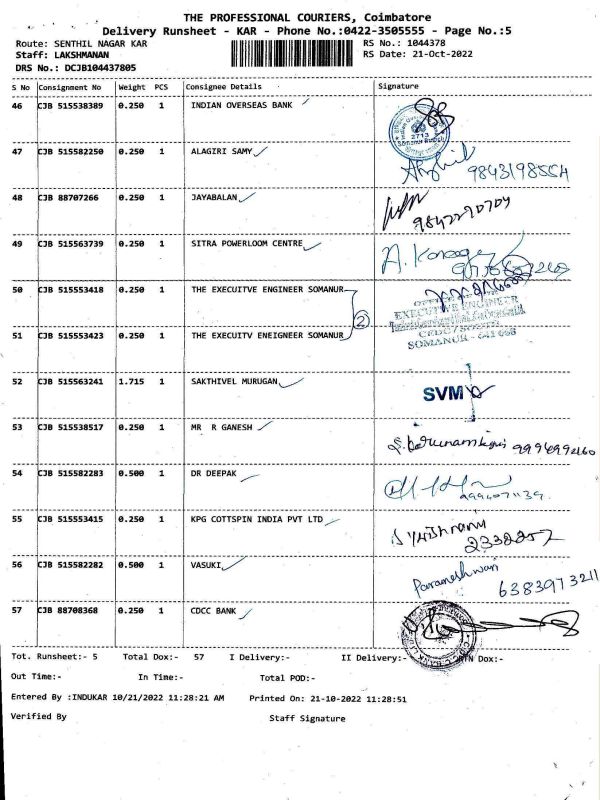 THE PROFESSIONAL COURIERS, Coimbatore
Delivery Runsheet - KAR - Phone No.:0422-3505555 - Page No.:5
Route: SENTHIL NAGAR KAR RS No.: 1044378
Staff: LAKSHMANAN RS Date: 21-Oct-2022
DRS No.: DCJB104437805
S No Consignment No Weight PCS Consignee Details Signature
46 CJB 515538389 0.250 1 INDIAN OVERSEAS BANK
2713
Somanur Branch
47 CJB 515582250 0.250 1 ALAGIRI SAMY
48 CJB 88707266 0.250 1 JAYABALAN
49 CJB 515563739 0.250 1 SITRA POWERLOOM CENTRE
50 CJB 515553418 0.250 1 THE EXECUITVE ENGINEER SOMANUR
2
EXECUTIVE ENGINEER
SOMANUR
51 CJB 515553423 0.250 1 THE EXECUITV ENEIGNEER SOMANUR
52 CJB 515563241 1.715 1 SAKTHIVEL MURUGAN
SVM
53 CJB 515538517 0.250 1 MR R GANESH
9994992160
54 CJB 515582283 0.500 1 DR DEEPAK
55 CJB 515553415 0.250 1 KPG COTTSPIN INDIA PVT LTD
2332257
56 CJB 515582282 0.500 1 VASUKI
Parameshwari
6383973211
57 CJB 88708368 0.250 1 CDCC BANK
Tot. Runsheet:- 5 Total Dox:- 57 I Delivery:- II Delivery:- Dox:-
Out Time:- In Time:- Total POD:-
Entered By :INDUKAR 10/21/2022 11:28:21 AM Printed On: 21-10-2022 11:28:51
Verified By Staff Signature